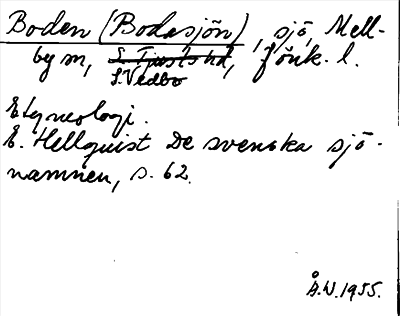 Boden (Bodasjön), sjö, Mell-
by sn, S. Tjusts hd, Jönk. l.
S. Vedbo
Etymologi.
E. Hellquist De svenska sjö-
namnen, s. 62.
Å.W. 1955.